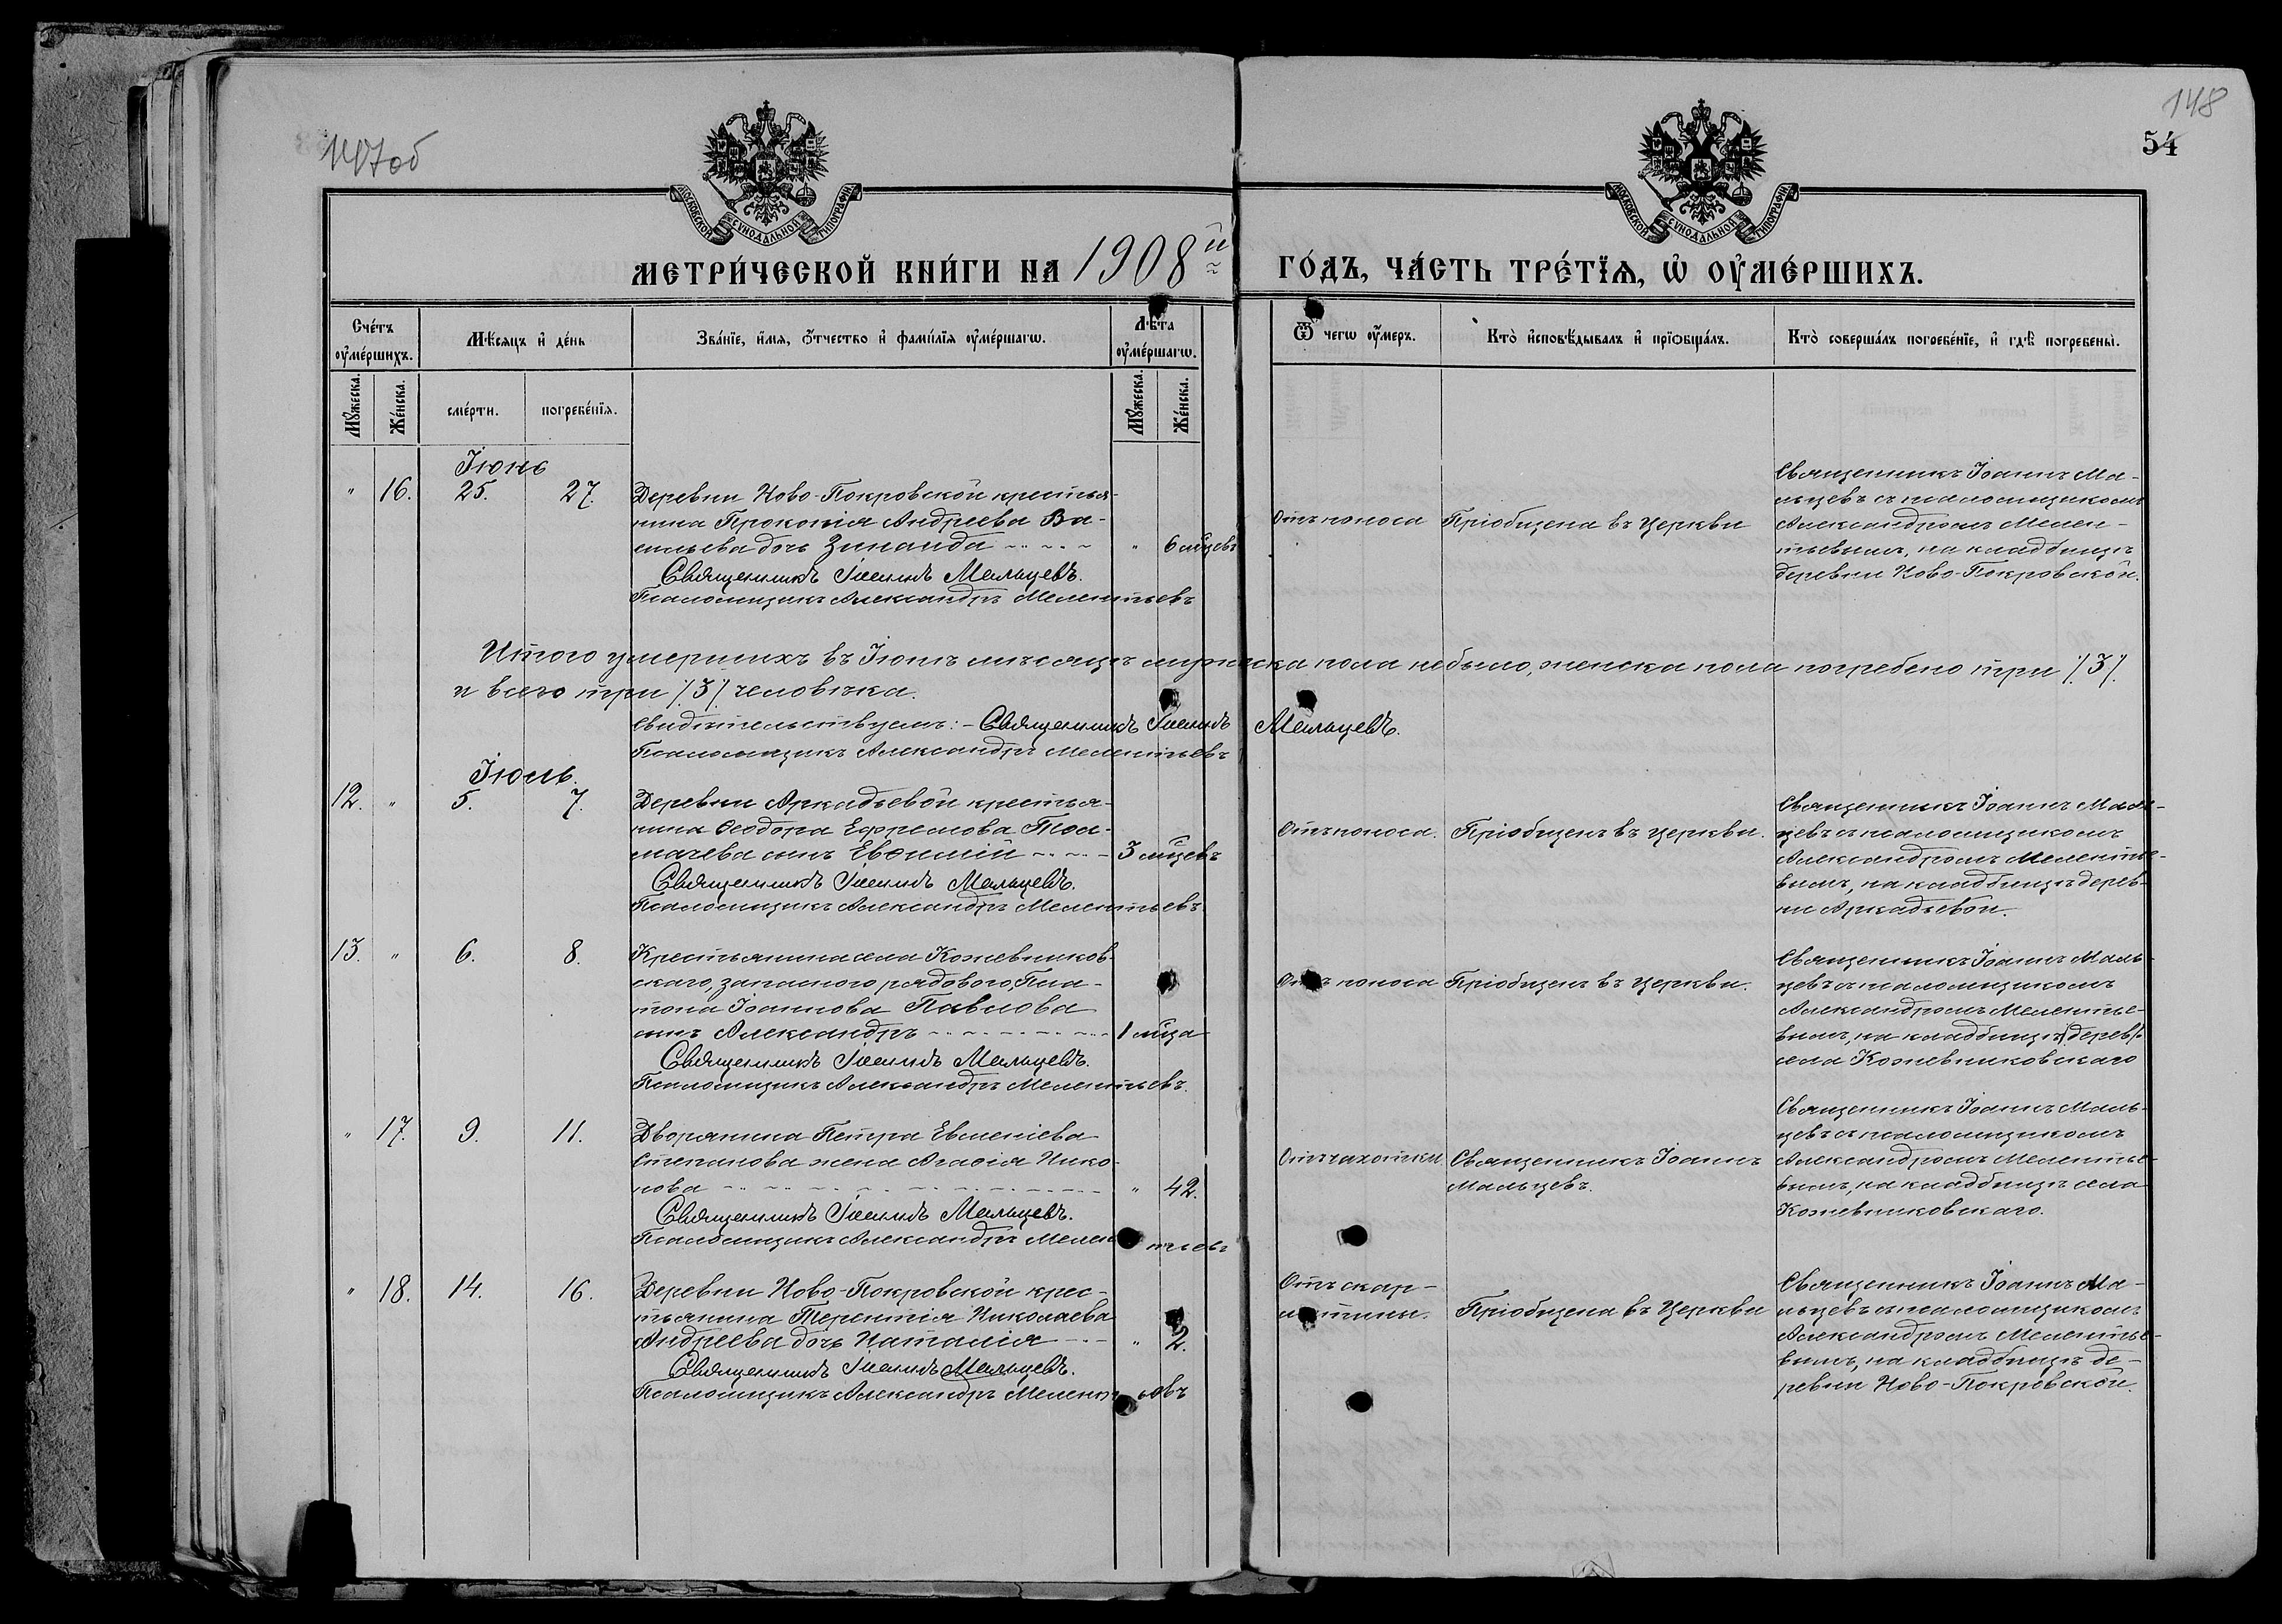 147об
148
54
МОСКОВСКОЙ СѴНОДАЛЬНОЙ ТИПОГРАФІИ
МОСКОВСКОЙ СѴНОДАЛЬНОЙ ТИПОГРАФІИ
МЕТРИ́ЧЕСКОЙ КНИ́ГИ НА 1908й ГО́ДЪ, ЧА́СТЬ ТРЕ́ТЇѦ, Ѡ҆ ОУ҆МЕ́РШИХЪ.
Сче́тъ оу҆ме́ршихъ.
Мѣ́сяцъ и҆ де́нь
Зва́нїе, и҆́мя, ѻ҆́тчество и҆ фами́лїя оу҆ме́ршагѡ.
Лѣ́та оу҆ме́ршагѡ.
Ѿ чегѡ̀ оу҆́меръ.
Кто̀ и҆сповѣ́дывалъ и҆ прїѡбща́лъ.
Кто̀ соверша́лъ погребе́нїе, и҆ гдѣ̀ погребены̀.
Мꙋ́жеска.
Же́нска.
сме́рти.
погребе́нїя.
Мꙋ́жеска.
Же́нска.
Іюнь
" 16. 25. 27. Деревни Ново-Покровской крестья-
нина Прокопія Андреева Ва-
сильева дочь Зинаида " 6 мѣсцевъ
Священникъ Іоаннъ Мальцевъ.
Псаломщикъ Александръ Мелентьевъ
Отъ поноса
Пріобщена въ церкви
Священникъ Іоаннъ Ма-
льцевъ съ псаломщикомъ
Александромъ Мелен-
тьевымъ, на кладбищѣ
деревни Ново-Покровской.
Итого умершихъ въ Іюнѣ мѣсяцѣ мужеска пола не было, женска пола погребено три /3/.
и всего три /3/ человѣка.
Свидѣтельствуемъ: - Священникъ Іоаннъ Мальцевъ.
Псаломщикъ Александръ Мелентьевъ
Іюль.
12. " 5. 7. Деревни Аркадьевой крестья-
нина Ѳеодора Ефремова Тол-
мачева сынъ Евѳимій 3 мѣсцевъ
Священникъ Іоаннъ Мальцевъ.
Псаломщикъ Александръ Мелентьевъ.
Отъ поноса.
Пріобщенъ въ церкви.
Священникъ Іоаннъ Маль-
цевъ съ псаломщикомъ
Александромъ Мелентье-
вымъ, на кладбищѣ дерев-
ни Аркадьевой.
13. " 6. 8. Крестьянина села Кожевников-
скаго, запасного рядового, Пла-
тона Іоаннова Павлова
сынъ Александръ 1 мѣсца
Священникъ Іоаннъ Мальцевъ.
Псаломщикъ Александръ Мелентьевъ.
Отъ поноса
Пріобщенъ въ церкви.
Священникъ Іоаннъ Маль-
цевъ съ псаломщикомъ
Александромъ Мелентье-
вымъ, на кладбищѣ /дерев/
села Кожевниковскаго
" 17. 9. 11. Дворянина Петра Евменіева
Степанова жена Агаѳія Нико-
нова " 42.
Священникъ Іоаннъ Мальцевъ.
Псаломщикъ Александръ Мелентьевъ
Отъ чахотки
Священникъ Іоаннъ
Мальцевъ.
Священникъ Іоаннъ Маль-
цевъ съ псаломщикомъ
Александромъ Мелентье-
вымъ, на кладбищѣ села
Кожевниковскаго.
" 18. 14. 16. Деревни Ново-Покровской крес-
тьянина Терентія Николаева
Андреева дочь Наталія " 2.
Священникъ Іоаннъ Мальцевъ.
Псаломщикъ Александръ Мелентьевъ
Отъ скар-
латины.
Пріобщена въ церкви
Священникъ Іоаннъ Ма-
льцевъ съ псаломщикомъ
Александромъ Мелентье-
вымъ, на кладбищѣ де-
ревни Ново-Покровской.